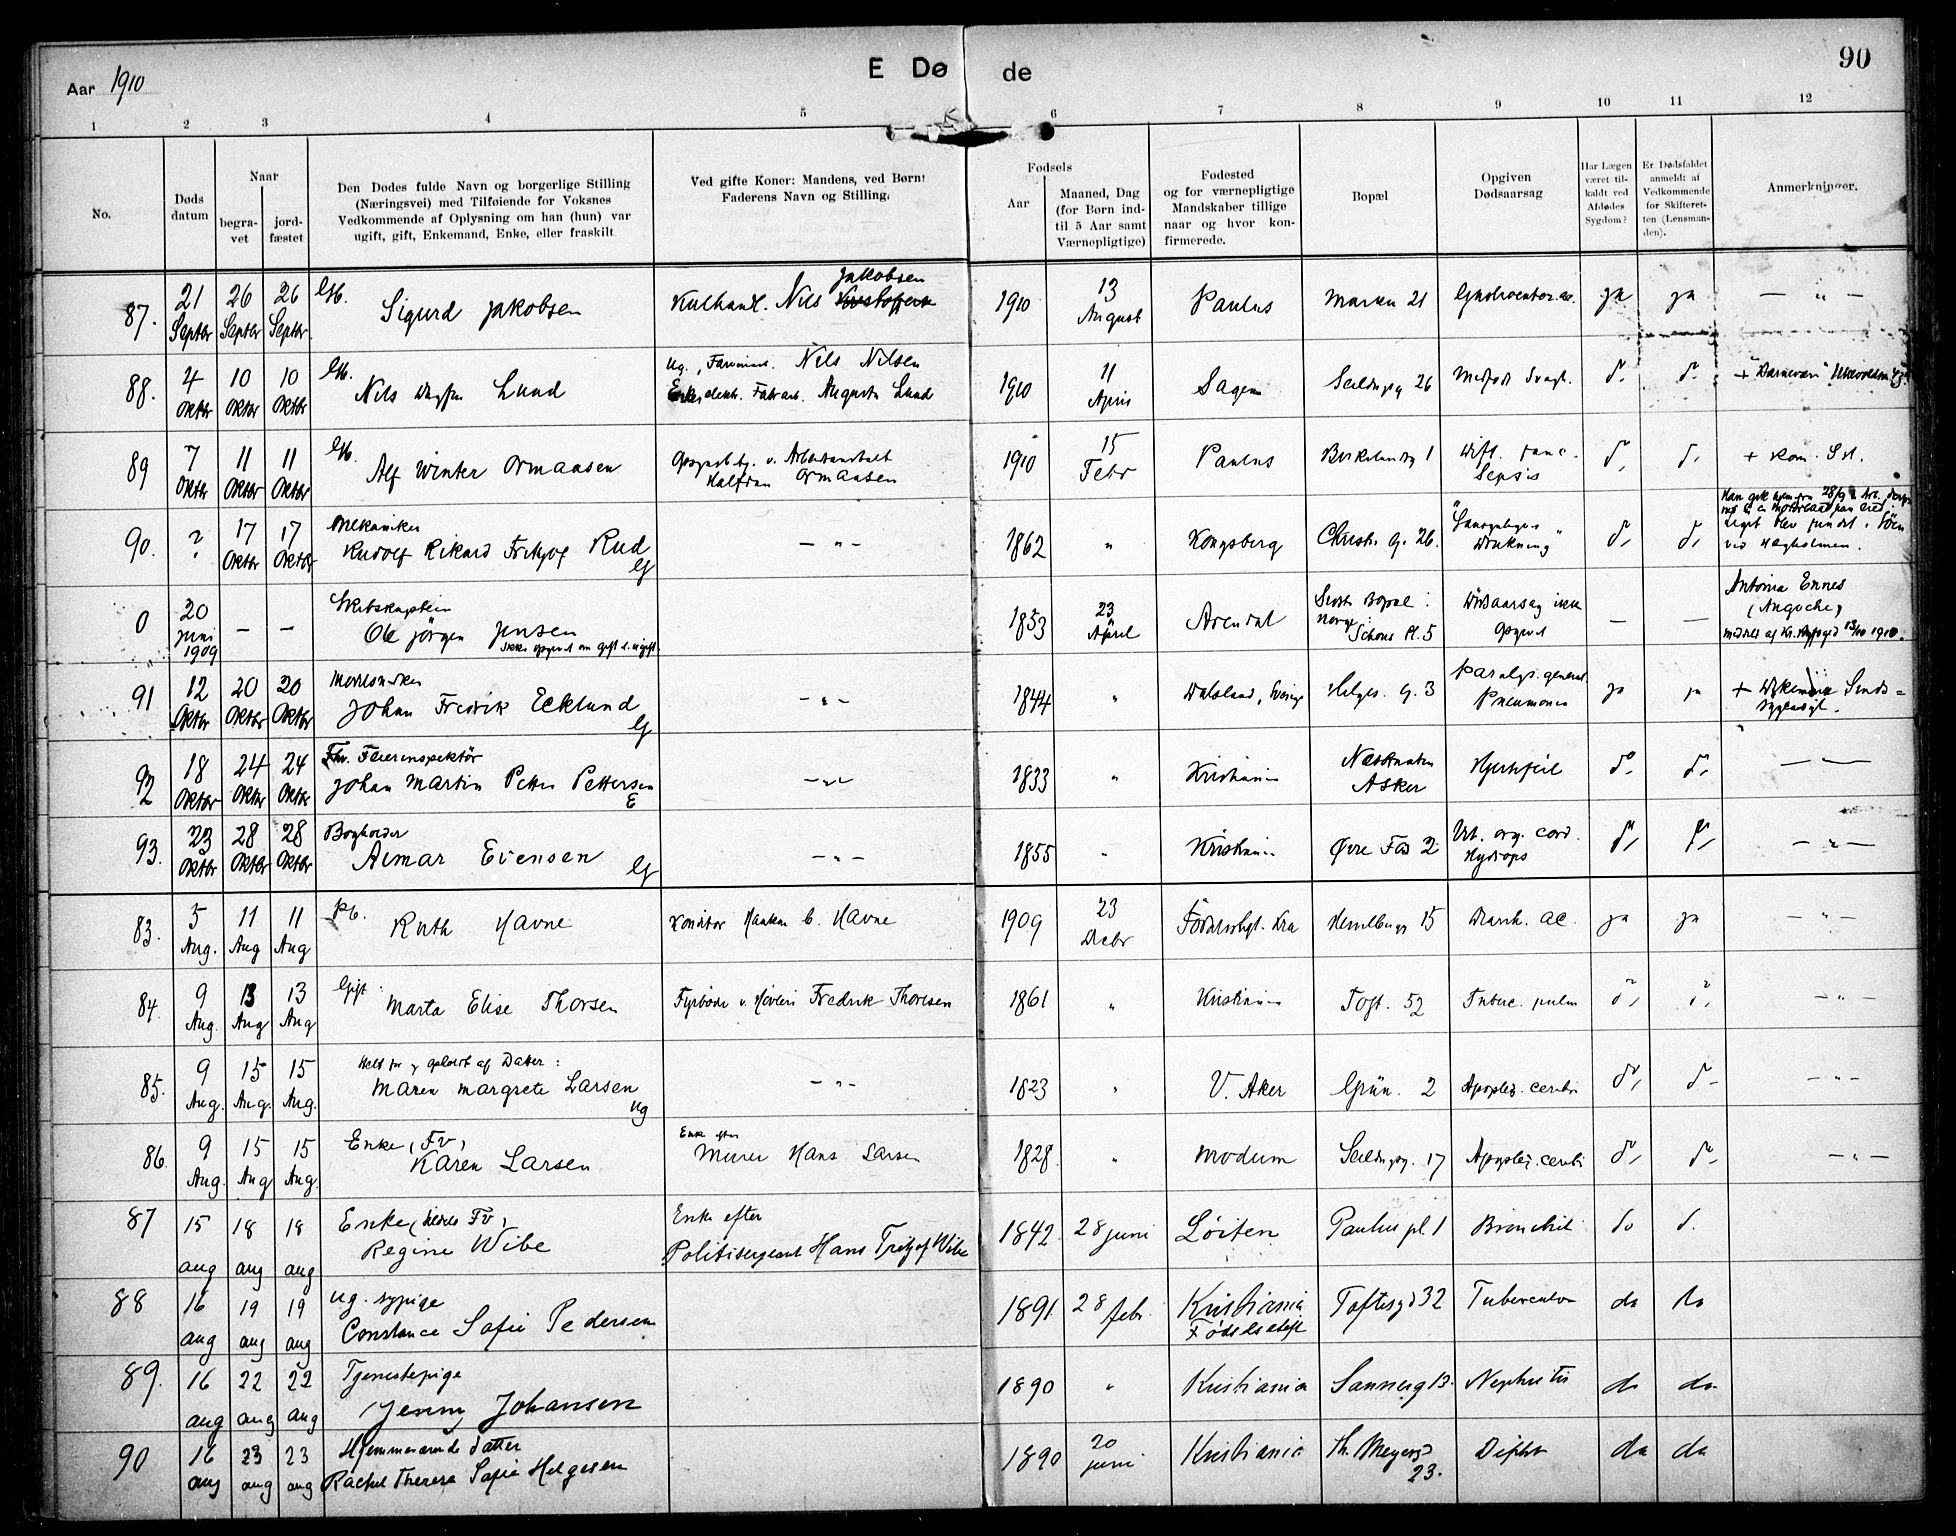 Aar 1910
E Dø de
90
1 2 3 4 5 6 7 8 9 10 11 12
No.
Døds datum
Naar
begra-vet
jord-fæstet
Den Dødes fulde Navn og borgerlige Stilling
(Næringsvei) med Tilføiende for Voksnes
Vedkommende af Oplysning om han (hun) var
ugift, gift, Enkemand, Enke, eller fraskilt
Ved gifte Koner: Mandens, ved Børn:
Faderens Navn og Stilling.
Fødsels
Aar
Maaned, Dag
(for Børn ind-
til 5 Aar samt
Værnepligtige)
Fødested
og for værnepligtige
Mandskaber tillige
naar og hvor kon-
firmerede.
Bopæl
Opgiven
Dødsaarsag
Har Lægen
været til-
kaldt ved
Afdødes
Sygdom?
Er Dødsfaldet
anmeldt af
Vedkommende
for Skifteret-
ten (Lensman-
den).
Anmerkninger.
87. 21 Septbr 26 Septbr 26 Septbr Sigurd Jakobsen Kulhandl. Nils Jakobsen 1910 13 August Paulus Markv 21 ja ja — " —
88. 4 Oktbr 10 Oktbr 10 Oktbr Nils Lund Ug. Nils Nilsen
Augusta Lund 1910 11 April Sagene Seildugsg 26 d. d.
89 7 Oktbr 11 Oktbr 11 Oktbr Alf Winter Ormaasen Halfdan Ormaasen 1910 15 Febr Paulus Birkelundg 1 Sepsis d. d. + Kom. S.
90. ? 17 Oktbr 17 Oktbr Mekaniker
Rudolf Rikard Fritjof Rud G — " — 1862 " Kongsberg Christ. G. 26. Drukning d. d.
ved Hegholmen.
0 20 juni 1909 — — Skibskaptein
Ole Jörgen Jensen
ikke opgivet om gift e. ugift 1853 23 April Arendal Sidste Bopæl i Norge: Schous Pl. 5 Dødsaarsag ikke opgivet — — Antonia Ennes
(Angoche)
13/10 1910.
91 12 Oktbr 20 Oktbr 20 Oktbr
Johan Fredrik Ecklund G — " — 1844 " Dalsland, Sverige Helges. G. 3 Paralys. general. Pneumoni ja ja + Dikemark Sinds-
sygeasyl.
92 18 Oktbr 24 Oktbr 24 Oktbr Fhv. Feierinspektör
Johan Martin Petter Pettersen E — " — 1833 " Kristiania Asker Hjertefeil d. d. — —
93. 23 Oktbr 28 Oktbr 28 Oktbr Bogholder
Aimar Evensen G — " — 1855 " Kristiania Øvre Fos 2 Vit. org. cord. Hydrops d. d. — " —
83. 5 Aug. 11 Aug 11 Aug Pb. Ruth Havne Konditor Haakon C. Havne 1909 23 Decbr Fødselsstift. Kra Hesselbergs 15 ja ja — " —
84. 9 Aug. 13 Aug 13 Aug Gift. Marta Elise Thorsen Fyrbøder v. Høvleri Fredrik Thorsen 1861 " Kristiania Toft. 52 Tuberc. pulm d. d. — " —
85. 9 Aug. 15 Aug. 15 Aug. af Datter:
Maren Margrete Larsen ug — " — 1823 " V. Aker Grün. 2 Apoplex. cerebri d. d. — " —
86. 9 Aug. 15 Aug 15 Aug. Enke (Fv)
Karen Larsen Enke efter
Murer Hans Larsen 1828 " Modum Seildugsg. 17 Apoplex. cerebri d. d. — " —
87 15 aug 18 aug 18 aug Enke
Regine Wibe Enke efter
Politisergeant Hans Fritjof Wibe 1842 28 juni Löiten Paulus pl. 1 Bronchit do d.
88 16 aug 19 aug 19 aug ug. sypige
Constance Sofie Pedersen 1891 28 febr. Kristiania
Fødselsstift Toftesgd 32 Tuberculose do do
89. 16 aug 22 aug 22 aug Tjenestepige
Jenny Johansen 1890 " Kristiania Sannerg 13. Nephritis do do.
90 16 aug 23 aug 23 aug Hjemmeværende datter
Rachel Therese Sofie Helgesen 1890 20 juni Kristiania Th. Meyersgd 23. Difteri do do